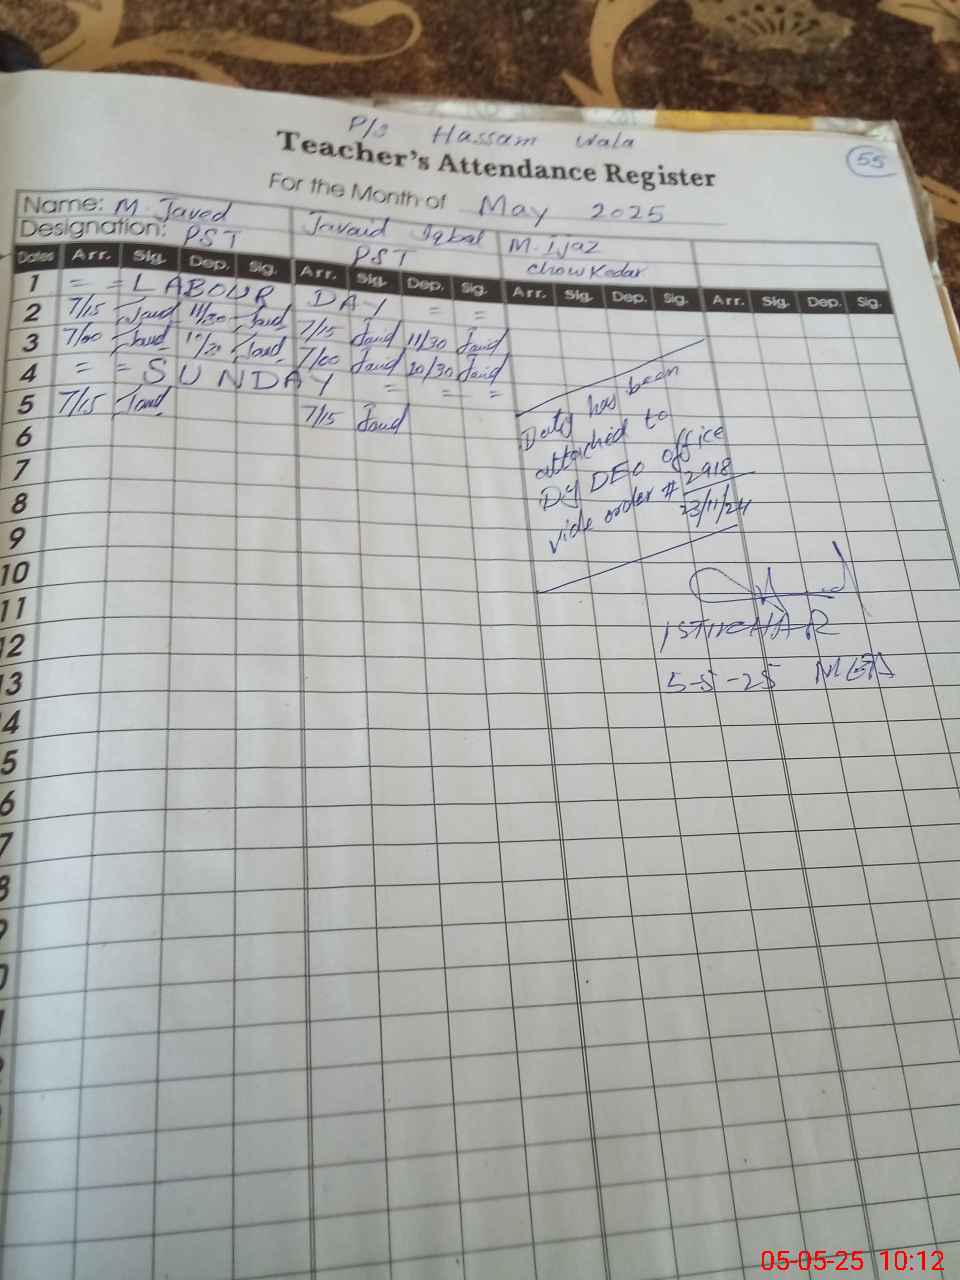 P/S Hassam Wala
Teacher's Attendance Register
55
For the Month of May 2025
Name: M. Javed Javaid Iqbal M. Ijaz
Designation: PST PST Chowkedar
Dates Arr. Sig. Dep. Sig. Arr. Sig. Dep. Sig. Arr. Sig. Dep. Sig. Arr. Sig. Dep. Sig.
1 = = LABOUR DAY = =
2 7/15 Javed 11/30 Javed 7/15 Javid 11/30 Javid
3 7/00 Javed 10/30 Javed 7/00 Javid 10/30 Javid
4 = = SUNDAY = = =
5 7/15 Javed 7/15 Javid
6
7
8
9
10
11
12
13
4
5
6
7
8
9
0
Duty has been
attached to
Dy DEO office
vide order # 2918
23/11/24
5-5-25 MEA
05-05-25 10:12